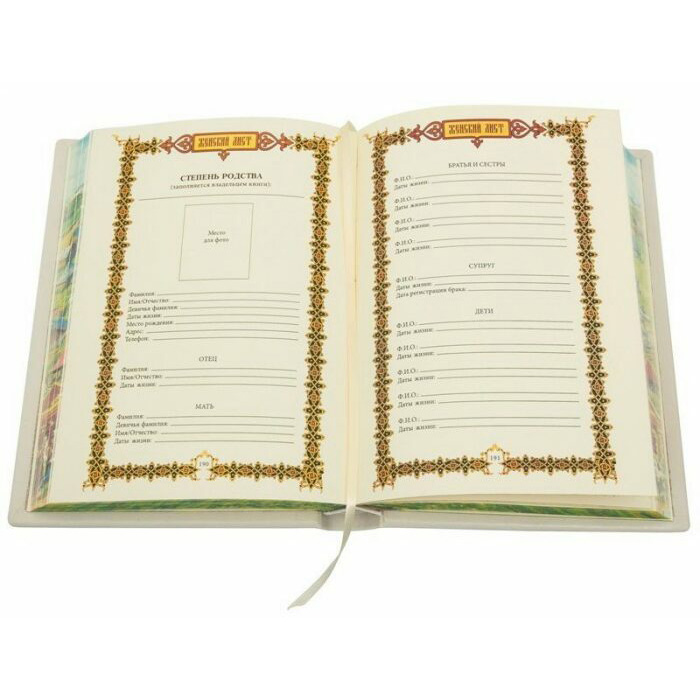 ЖЕНСКИЙ ЛИСТ
СТЕПЕНЬ РОДСТВА
(заполняется владельцем книги):
Место
для фото
Фамилия:
Имя/Отчество:
Девичья фамилия:
Даты жизни:
Место рождения:
Адрес:
Телефон:
ОТЕЦ
Фамилия:
Имя/Отчество:
Даты жизни:
МАТЬ
Фамилия:
Девичья фамилия:
Имя/Отчество:
Даты жизни:
190
ЖЕНСКИЙ ЛИСТ
БРАТЬЯ И СЕСТРЫ
Ф.И.О.:
Даты жизни:
Ф.И.О.:
Даты жизни:
Ф.И.О.:
Даты жизни:
СУПРУГ
Ф.И.О.:
Даты жизни:
Дата регистрации брака:
ДЕТИ
Ф.И.О.:
Даты жизни:
Ф.И.О.:
Даты жизни:
Ф.И.О.:
Даты жизни:
Ф.И.О.:
Даты жизни:
Ф.И.О.:
Даты жизни:
191